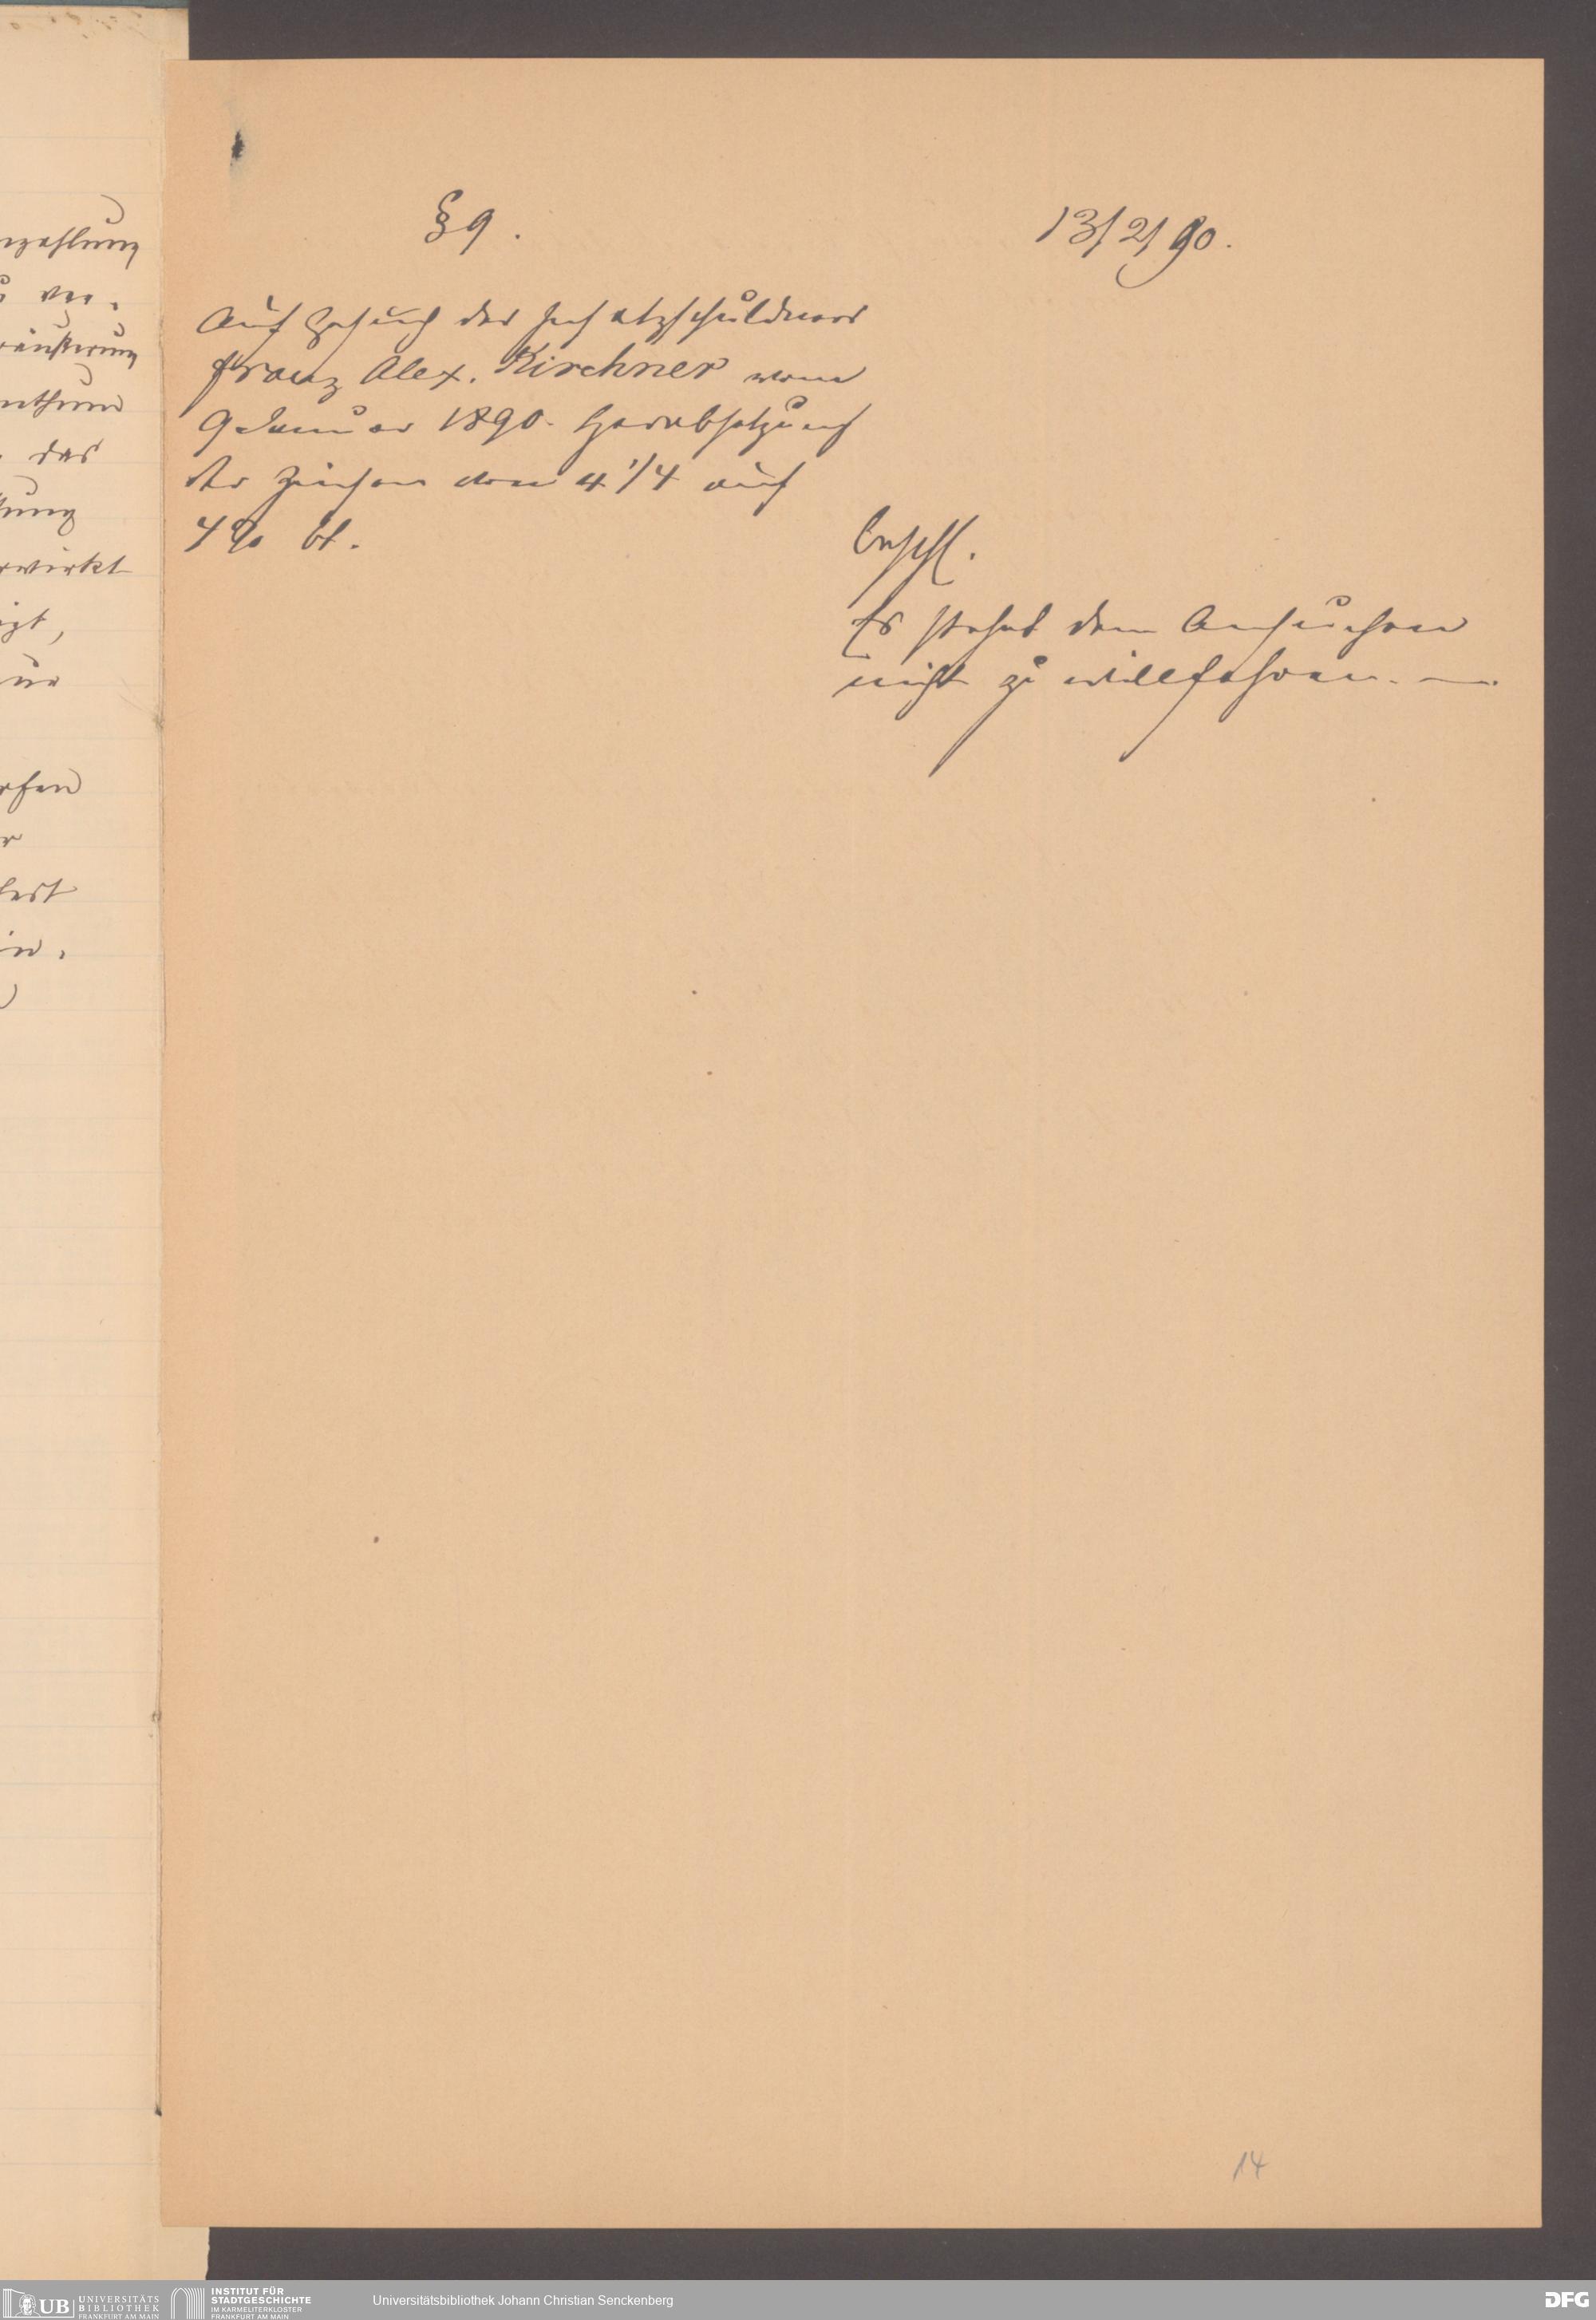 nzahlung
zu ver-
räußerung
nthum
das
tung
rwirkt
igt,
ur
rfen
r
in.
§ 9.
13/2/90.
Auf Gesuch des Insatzschuldners
Franz Alex. Kirchner vom
9 Januar 1890. Herabsetzung
der Zinsen von 4 1/4 auf
4% bt.
beschl.
Es stehet dem Ansuchen
nicht zu willfahren. —.
14
UB UNIVERSITÄTS
BIBLIOTHEK
FRANKFURT AM MAIN
INSTITUT FÜR
STADTGESCHICHTE
IM KARMELITERKLOSTER
FRANKFURT AM MAIN
Universitätsbibliothek Johann Christian Senckenberg
DFG